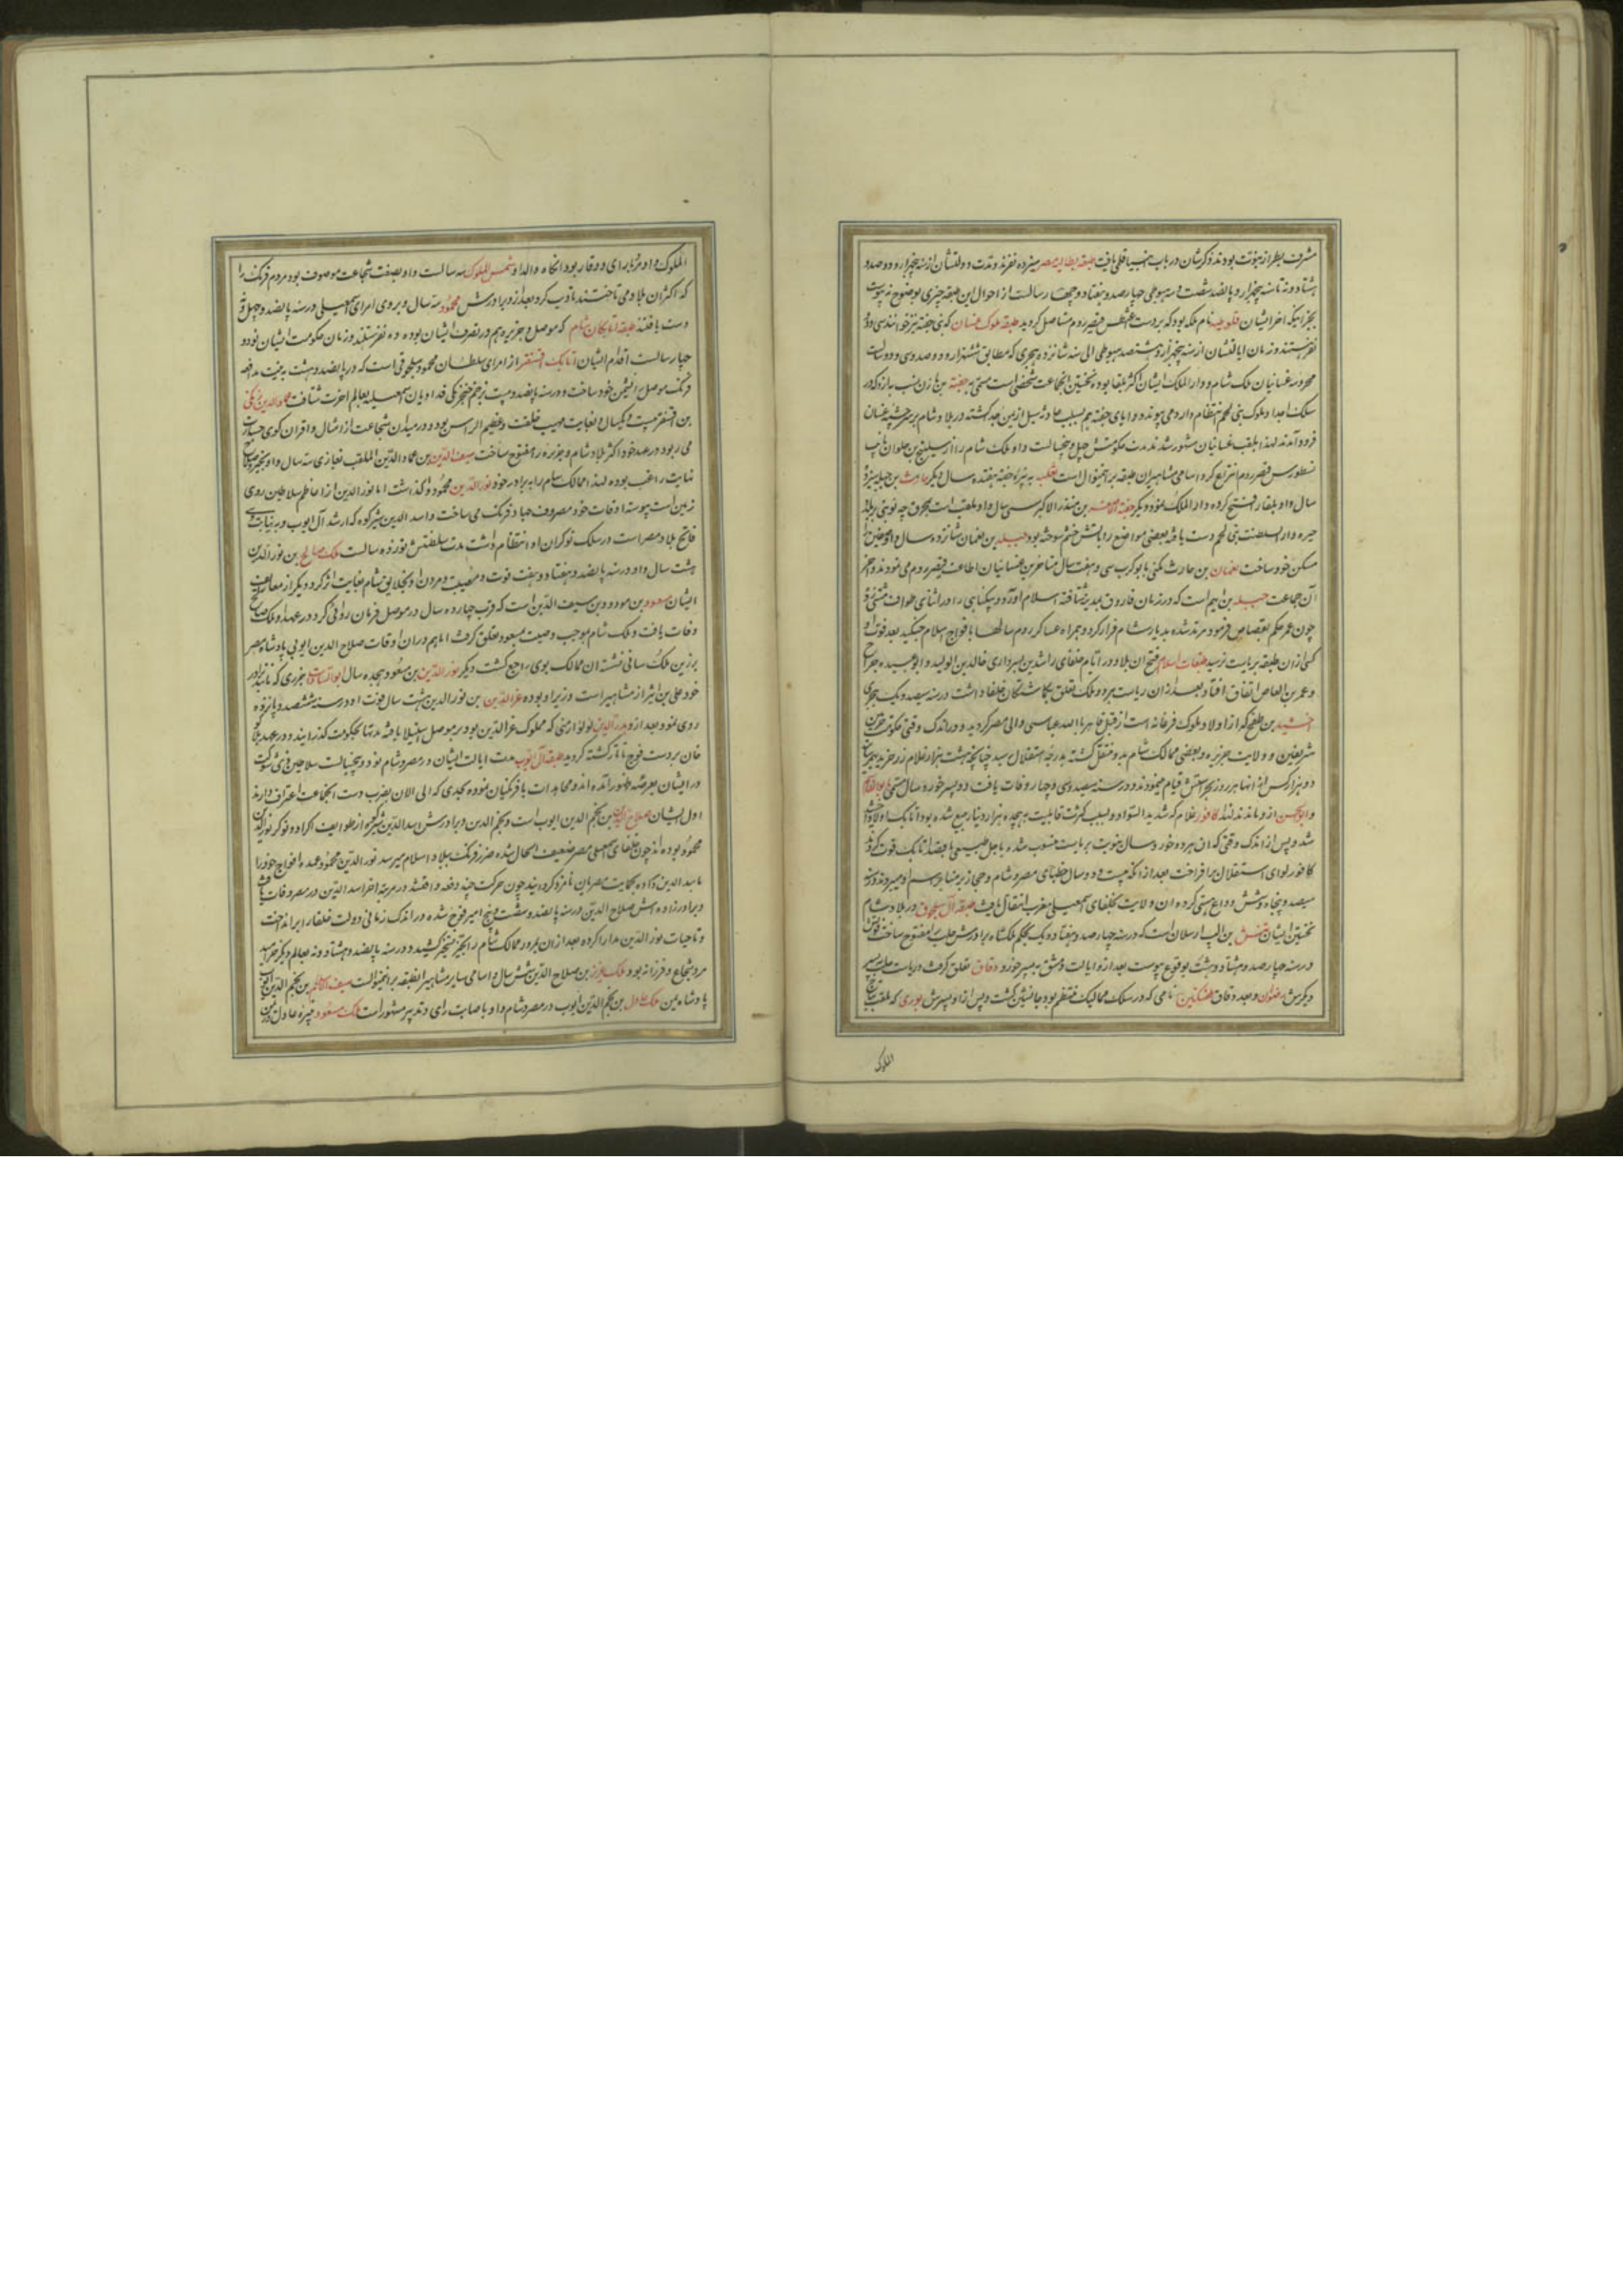 مشرف بطراز نبوت بودند ذکرشان در باب انبیا قلمی یافت طبقه بطالسه مصر سیزده نفرند و مدت دولتشان از سنه پنجهزار و دو صد و
هشتاد و نه تا سنه پنجهزار و پانصد و شصت و سه هبوطی چهارصد و هفتاد و چهار سالست از احوال این طبقه چیزی بوضوح نه پیوست
بجز اینکه آخر ایشان قلوپطره نام ملکه بود که بر دست اغسطس قیصر روم مستاصل گردید طبقه ملوک غسان که بنی جفنه نیز خوانند سی و دو
نفر هستند و زمان ایالتشان از سنه پنجهزار و ششصد هبوطی الی سنه شانزده هجری که مطابق ششهزار و دو صد و سی و دو سالست
محروسه غسانیان ملک شام و دار الملک ایشان اکثر بلقا بوده نخستین آنجماعت شخصی است مسمی به جفنه بن
سلک اجداد ملوک بنی لخم انتظام دارد می پیوندد و ابای جفنه هم بسبب حادثه سیل از یمن جدا گشته در بلاد شام بر سر چشمه غسان
فرود آمدند لهذا بلقب غسانیان مشهور شدند مدت حکومتش چهل و پنجسالست و او ملک شام را از سلیح بن حلوان نایب
نسطورس قیصر روم انتزاع کرد و اسامی مشاهیر آن طبقه بر اینمنوال است ثعلبه نبیره جفنه هفده سال و دیگر حارث بن جبله بیست
سال و او بلقا را فتح کرده دار الملک نمود و دیگر جفنه الاصغر بن منذر الاکبر سی سال و او ملقب است بمحرق چه نوبتی بر بلاد
حیره دار السلطنت بنی لخم دست یافته بعضی مواضع را بآتش خشم سوخته بود جبله بن نعمان شانزده سال و او صفین را
مسکن خود ساخت نعمان بن حارث مکنی بابو کرب سی و هفت سال متاخرین غسانیان اطاعت قیصر روم می نمودند و آخر
آن جماعت جبله بن ایهم است که در زمان فاروق بمدینه شتافته اسلام آورد و بیگناهی را در اثنای طواف
چون عمر حکم بقصاص فرمود مرتد شده بدیار شام فرار کرد و همراه عساکر روم سالها با افواج اسلام جنگید بعد فوت او
کسی از آن طبقه بریاست نرسید طبقات اسلام فتح آن بلاد در ایام خلفای راشدین بسرداری خالد بن الولید و ابو عبیده جراح
و عمر بن العاص اتفاق افتاد و بعد از آن ریاست هر دو ملک تعلق بگماشتگان خلفا داشت در سنه سیصد و یک هجری
اخشید بن طغج که از اولاد ملوک فرغانه است از قبل قاهر بالله عباسی والی مصر گردید و در اندک وقتی حکومت حرمین
شریفین و ولایت جزیره و بعضی ممالک شام بدو منتقل گشته بدرجه استقلال رسید چنانچه هشت هزار غلام زر خرید
دو هزار کس از آنها هر روز بحراستش قیام مینمودند و در سنه سیصد و سی و چهار وفات یافت دو پسر خورد سال مسمی بابو القاسم
و ابو الحسن از و ماندند لهذا کافور غلام که شدید السواد و بسبب کثرت قابلیت به هجده هزار دینار مبیع شده بود اتابک اولاد
شد و پس از اندک وقتی که آن هر دو خورد سال بنوبت بریاست منسوب شده باجل طبیعی یا بقصد اتابک فوت کردند
کافور لوای استقلال بر افراخت بعد از آنکه بیست و دو سال خطبهای مصر و شام و حجاز بر منابر
سیصد و پنجاه و شش وداع هستی کرده آن ولایت بخلفای اسمعیلی مغرب انتقال یافت طبقه آل سلجوق در بلاد شام
نخستین ایشان تتش بن الب ارسلان است که در سنه چهارصد و هفتاد و یک بحکم ملکشاه برادرش حلب را مفتوح ساخت فوتش
در سنه چهارصد و هشتاد و هشت بوقوع پیوست بعد از و ایالت دمشق به پسر خورد و دقاق تعلق گرفت و ریاست حلب به پسر
دیگرش رضوان و بعد دقاق طغتکین نامی که در سلک ممالیک منتظم بود جانشین گشت و پس از او پسرش بوری که ملقب بتاج
الملوک
الملوک و او مرد با رای و وقار بود آنگاه والد او شمس الملوک سه سالست و او بصفت شجاعت موصوف بود مردم فرنگ را
که اکثر آن بلاد می تاختند تادیب کرد بعد از و برادرش محمود سه سال و بر وی امرای اسمعیلی در سنه پانصد و چهل و
دست یافتند طبقه اتابکان شام که موصل و جزیره هم در تصرف ایشان بوده ده نفر هستند و زمان حکومت ایشان نود و
چهار سالست اقدم ایشان اتابک اقسنقر از امرای سلطان محمود سلجوقی است که در پانصد و هشت به نیت مدافعه
فرنگ موصل را نشیمن خود ساخت و در سنه پانصد و بیست بزخم خنجر یکی فداویان اسمعیلیه بعالم آخرت شتافت عماد الدین زنگی
بن اقسنقر بیست و یکسال و بغایت مهیب خلقت و عظیم الراس بود و در میدان شجاعت از امثال و اقران گوی جسارت
می ربود در عهد خود اکثر بلاد شام و جزیره را مفتوح ساخت سیف الدین بن عماد الدین الملقب بغازی سه سال و او
نهایت راغب بوده لهذا ممالک شام را به برادر خود نور الدین محمود وا گذاشت اما نور الدین از اعاظم سلاطین روی
زمین است پیوسته اوقات خود مصروف جهاد فرنگ می ساخت و اسد الدین شیرکوه که ارشد آل ایوب
فاتح بلاد مصر است در سلک نوکران او انتظام داشت مدت سلطنتش نوزده سالست ملک صالح بن نور الدین
هشت سال و او در سنه پانصد و هفتاد و هفت فوت و مصیبت مردن او بخلایق شام بغایت اثر کرد و دیگر از معاریف
ایشان مسعود بن مودود بن سیف الدین است که قرب چهارده سال در موصل فرمان روائی کرد در عهد او ملک صالح
وفات یافت و ملک شام بموجب وصیت بمسعود تعلق گرفت اما هم در آن اوقات صلاح الدین ایوبی پادشاه مصر
بر زین ملک ستانی نشسته آن ممالک بوی راجع گشت و دیگر نور الدین بن مسعود هجده سال ابو السعادات جزری که مانند برادر
خود علی بن اثیر از مشاهیر است وزیر او بوده عز الدین بن نور الدین هشت سال فوت او در سنه ششصد و پانزده
روی نمود بعد از و بدر الدین لولو ارمنی که مملوک عز الدین بود بر موصل استیلا یافته مدتها بحکومت گذرانید و در عهد هلاکو
خان بر دست فوج تاتار کشته گردید طبقه آل ایوب مدت ایالت ایشان در مصر و شام نود و پنجسالست سلاطین ذی شوکت
در ایشان بعرصه ظهور آمده اند و مجاهدات با فرنگیان نموده بحدی که الی الان بضرب دست آنجماعت اعتراف دارند
اول ایشان صلاح الدین بن نجم الدین ایوب است و نجم الدین و برادرش اسد الدین شیرکوه از طوایف اکراد و نوکر نور الدین
محمود بوده اند چون خلفای اسمعیلی مصر ضعیف الحال شده ضرر فرنگ ببلاد اسلام میرسد نور الدین محمود عمده افواج خود را
باسد الدین داده بحمایت مصریان نامزد گردانید چون حرکت چند دفعه واقع شد در مرتبه آخر اسد الدین در مصر وفات یافت
و برادر زاده اش صلاح الدین در سنه پانصد و شصت و پنج امیر فوج شده در اندک زمانی دولت خلفا را بر انداخت
و تا حیات نور الدین مدارا کرده بعد از آن بمرور ممالک شام را بحیز تسخیر کشید و در سنه پانصد و هشتاد و نه بعالم دیگر خرامید
مرد شجاع و فرزانه بود و ملک عزیز بن صلاح الدین شش سال و اسامی سایر مشاهیر آنطبقه بر اینمنوالست سیف الاسلام بن نجم الدین ایوب
پادشاه یمن ملک عادل بن نجم الدین ایوب در مصر و شام و او باصابت رای و تدبیر مشهور است ملک مسعود نبیره عادل در یمن